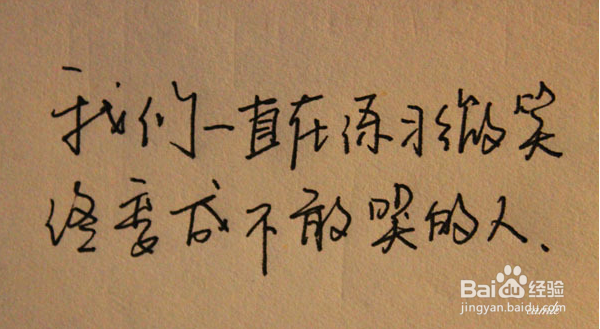 我们一直在练习微笑
终变成不敢哭的人、
Bai du 经验
jingyan.baidu.com